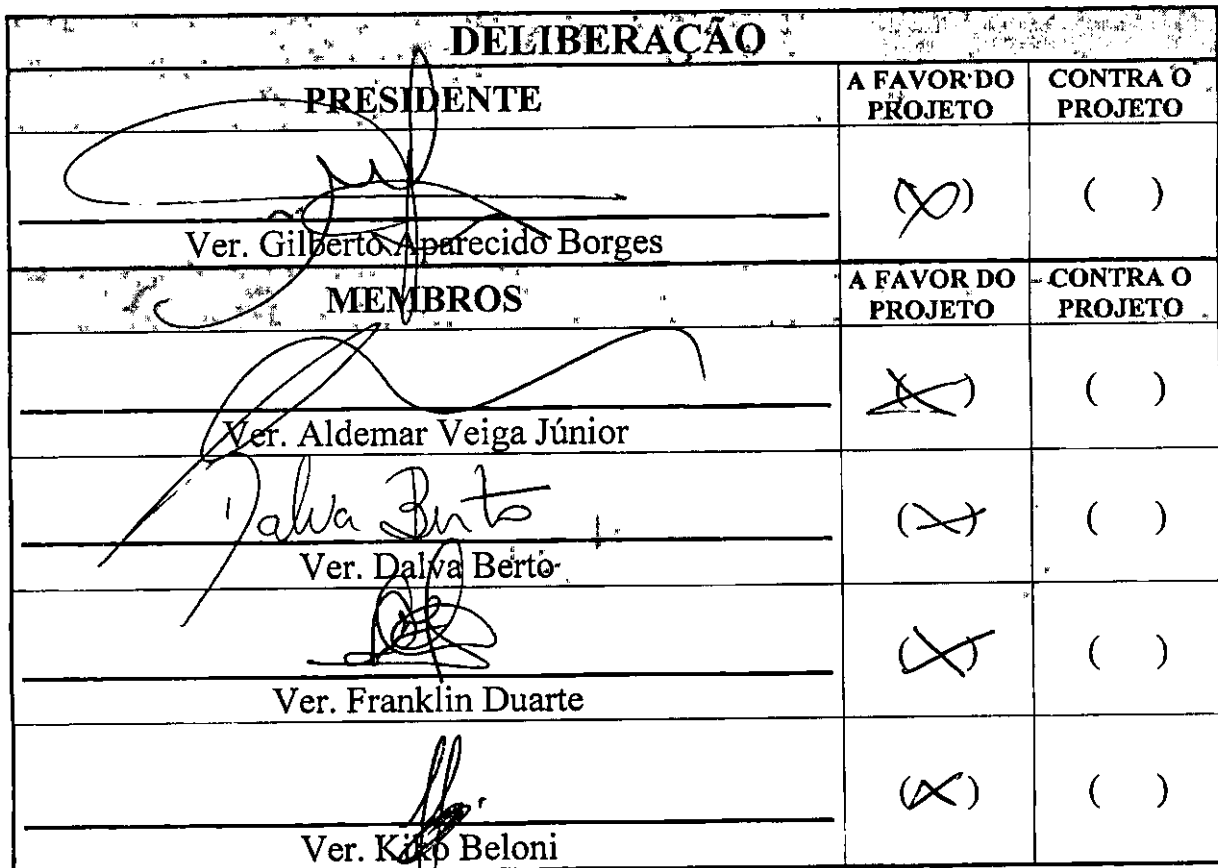 DELIBERAÇÃO
PRESIDENTE
A FAVOR DO PROJETO
CONTRA O PROJETO
Ver. Gilberto Aparecido Borges
(X)
( )
MEMBROS
A FAVOR DO PROJETO
CONTRA O PROJETO
Ver. Aldemar Veiga Júnior
(X)
( )
Dalva Berto
Ver. Dalva Berto
(X)
( )
Ver. Franklin Duarte
(X)
( )
Ver. Kiko Beloni
(X)
( )